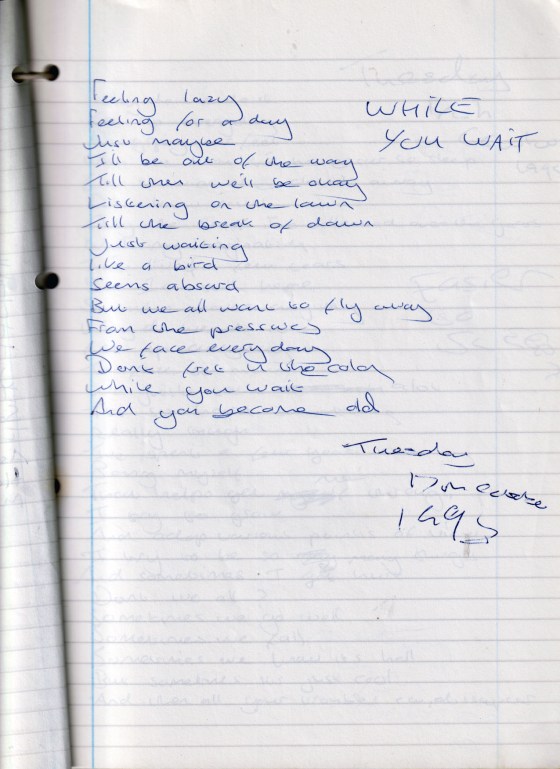 WHILE
YOU WAIT
Feeling lazy
Feeling for a day
Just maybe
I'll be out of the way
Till then we'll be okay
Listening on the lawn
Till the break of dawn
Just waiting
Like a bird
Seems absurd
But we all want to fly away
From the pressures
We face everyday
Dont fret in the cold
While you wait
And you become old
Tuesday